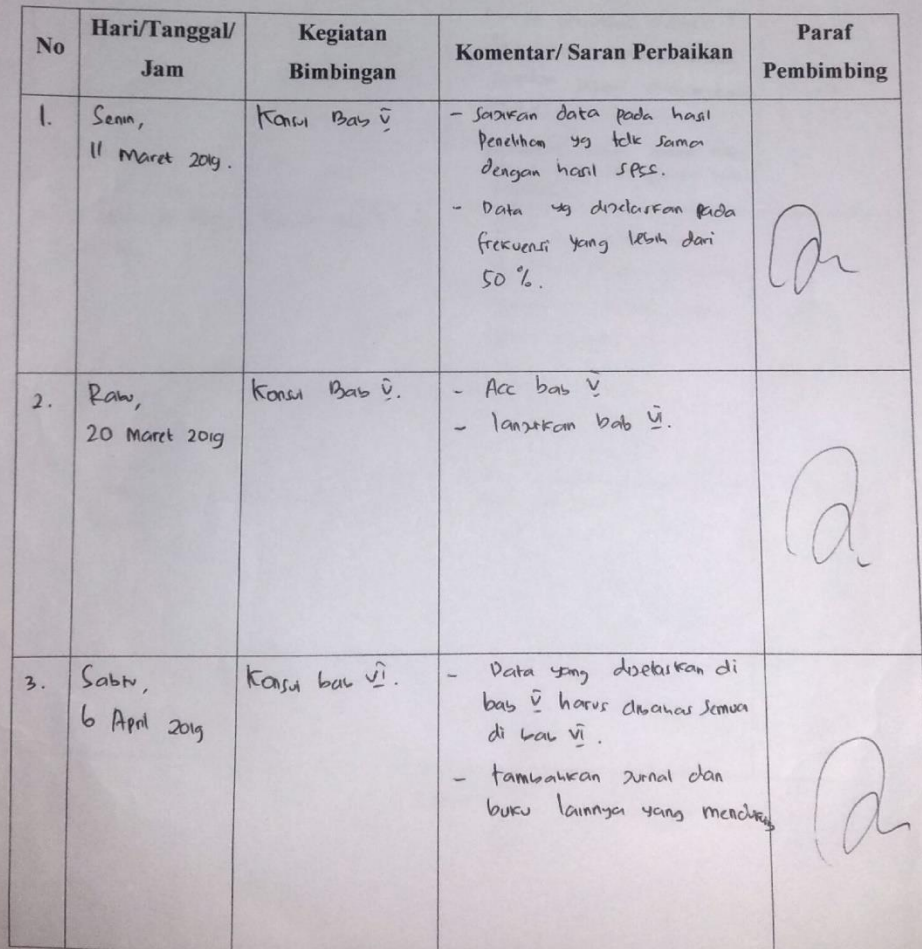 No
Hari/Tanggal/
Jam
Kegiatan
Bimbingan
Komentar/ Saran Perbaikan
Paraf
Pembimbing
1.
Senin,
11 Maret 2019.
Konsul Bab V
- Sajikan data pada hasil
Penelitian yg tdk sama
dengan hasil SPSS.
- Data yg dijelaskan pada
frekuensi yang lebih dari
50 %.
2.
Rabu,
20 Maret 2019
Konsul Bab V.
- Acc bab V
- lanjutkan bab VI.
3.
Sabtu,
6 April 2019
Konsul bab VI.
- Data yang dijelaskan di
bab V harus dibahas semua
di bab VI.
- tambahkan Jurnal dan
buku lainnya yang mendukung